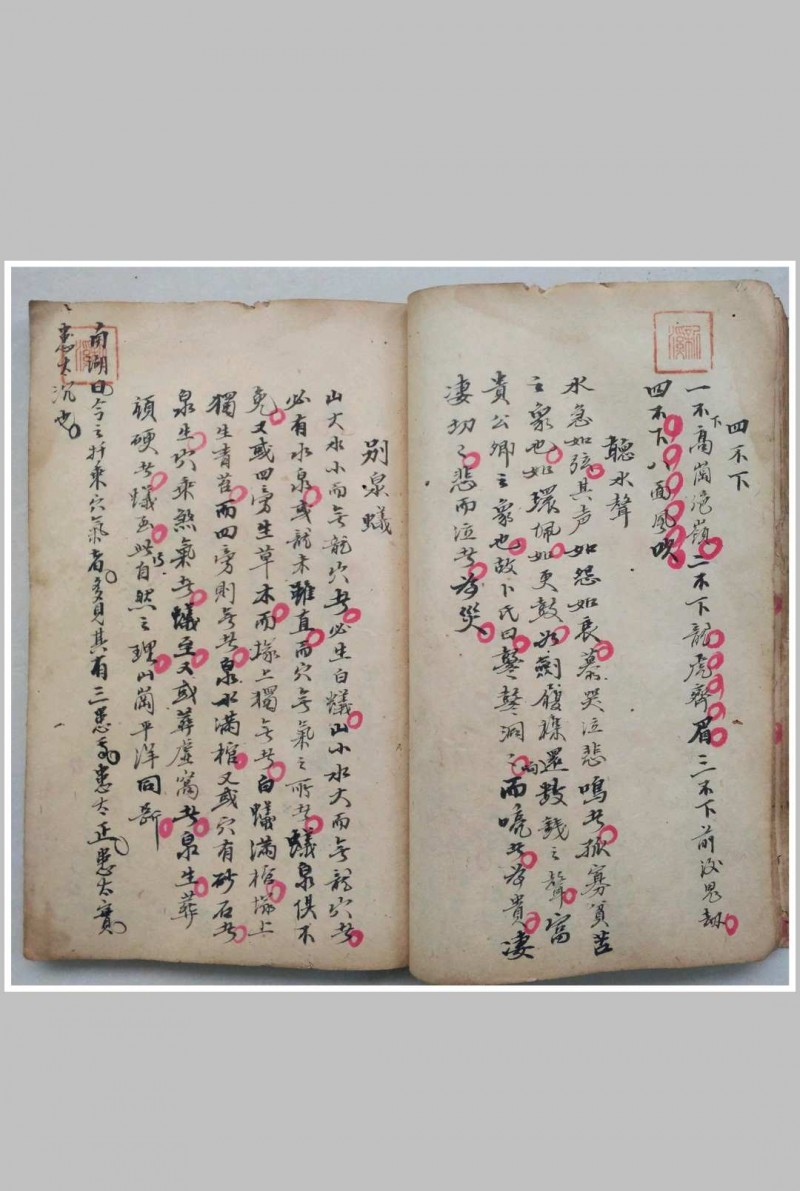 四不下
一不下高崗绝嶺二不下龍虎齊眉三不下前後鬼刼
四不下八面風吹
聽水聲
水急如弦其声如怨如哀慕哭泣悲鳴者孤寡貧苦
之象也如環佩如更鼓如剑
還数錢之聲富
貴公卿之象也故卜氏曰鼕鼕洞洞而喨者為貴凄
凄切切悲而泣者為災
别泉蟻
山大水小而無龍穴者必生白蟻山小水大而無龍穴者
必有水泉或龍来雖直而穴無氣之所者蟻泉俱不
免又或四旁生草木而塚上獨無者白蟻滿棺塚上
獨生青苔而四旁則無者泉水滿棺又或穴有砂石者
泉生穴乘煞氣者蟻至又或葬虚窩者泉生葬
頑硬者蟻至此乃自然之理山崗平洋同斷
南湖曰今之扦乘穴氣者多見其有三患焉患太正患太實
患太沉也